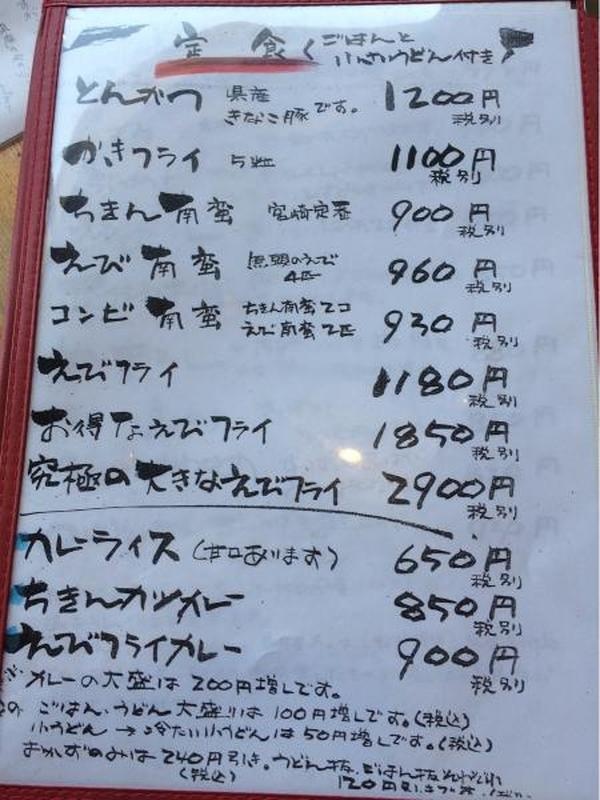 定食（ごはんと
小さいうどん付き）
とんかつ 県産
きなこ豚です。 1200円
税別
かきフライ 5粒 1100円
税別
ちきん南蛮 宮崎定番 900円
税別
えび南蛮 無頭のえび
4匹 960円
税別
コンビ南蛮 ちきん南蛮2コ
えび南蛮2匹 930円
税別
えびフライ 1180円
税別
お得なえびフライ 1850円
税別
究極の大きなえびフライ 2900円
税別
カレーライス（甘口あります） 650円
税別
ちきんカツカレー 850円
税別
えびフライカレー 900円
税別
カレーの大盛は200円増しです。
ごはん、うどん大盛りは100円増しです。（税込）
小うどん→冷たい小うどんは50円増しです。（税込）
おかずのみは240円引き。うどん抜、ごはん抜それぞれ
（税込） 120円引き